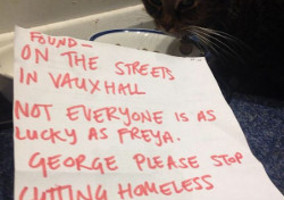 FOUND-
ON THE STREETS
IN VAUXHALL
NOT EVERYONE IS AS
LUCKY AS FREYA.
GEORGE PLEASE STOP
CUTTING HOMELESS